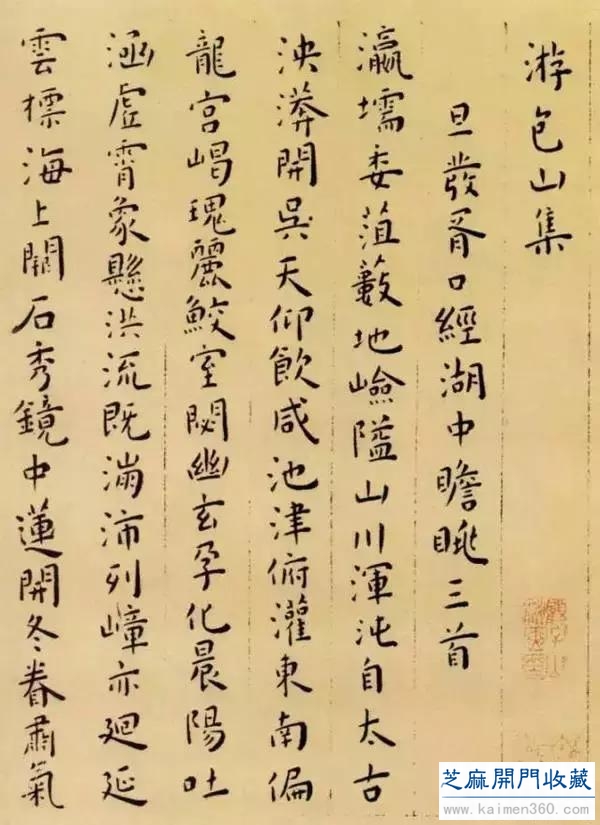 游包山集
旦發胥口經湖中瞻眺三首
瀛壖委菹藪地嶮隘山川渾沌自太古
泱漭開吳天仰飲咸池津俯灌東南偏
龍宮嵑瑰麗鮫室閟幽玄孕化晨陽吐
涵虛霄象懸洪流既滂沛列嶂亦迴延
雲標海上闕石秀鏡中蓮開冬眷肅氣
芝麻開門收藏
www.kaimen360.com